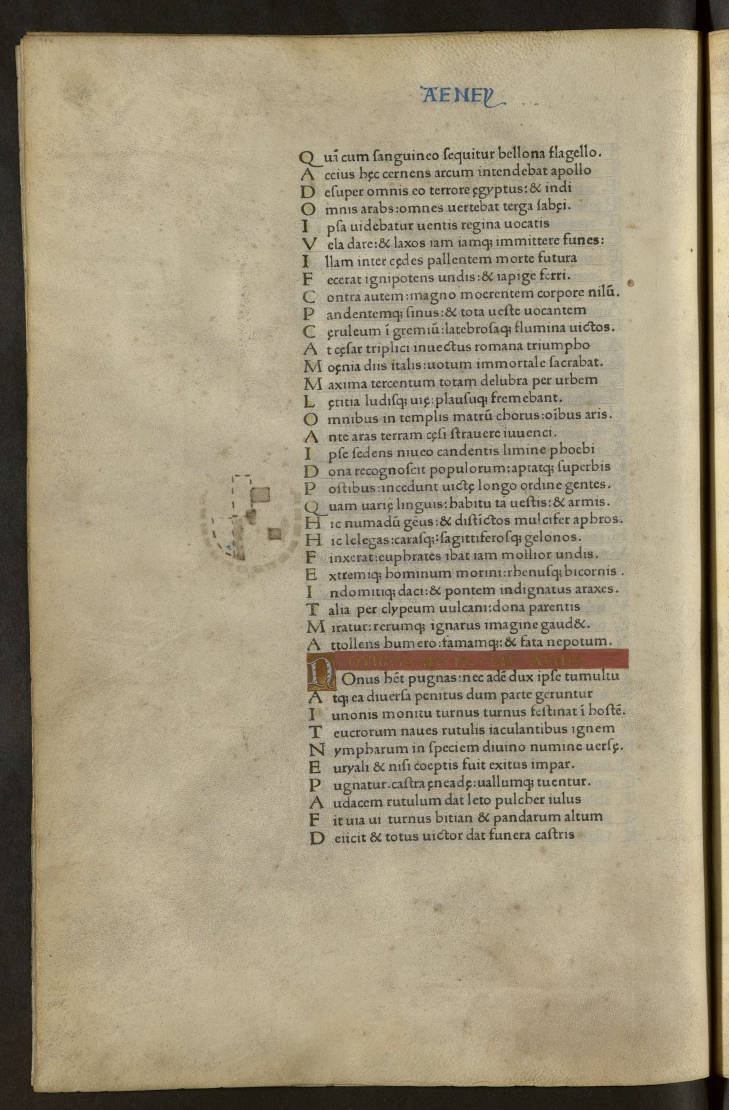 AENEY
Quā cum sanguineo sequitur bellona flagello.
Accius hęc cernens arcum intendebat apollo
Desuper omnis eo terrore ęgyptus: & indi
Omnis arabs: omnes uertebat terga sabęi.
Ipsa uidebatur uentis regina uocatis
Vela dare: & laxos iam iamq; immittere funes:
Illam inter cędes pallentem morte futura
Fecerat ignipotens undis: & iapige ferri.
Contra autem: magno moerentem corpore nilū.
Pandentemq; sinus: & tota ueste uocantem
Cęruleum ī gremiū: latebrosaq; flumina uictos.
At cęsar triplici inuectus romana triumpho
Moęnia diis italis: uotum immortale sacrabat.
Maxima tercentum totam delubra per urbem
Lętitia ludisq; uię: plausuq; fremebant.
Omnibus in templis matrū chorus: oībus aris.
Ante aras terram cęsi strauere iuuenci.
Ipse sedens niueo candentis limine phoebi
Dona recognoscit populorum: aptatq; superbis
Postibus: incedunt uictę longo ordine gentes.
Quam uarię linguis: habitu ta uestis: & armis.
Hic numadū geus: & distictos mulcifer aphros.
Hic lelegas: carasq;: sagittiferosq; gelonos.
Finxerat: euphrates ibat iam mollior undis.
Extremiq; hominum morini: rhenusq; bicornis.
Indomitiq; daci: & pontem indignatus araxes.
Talia per clypeum uulcani: dona parentis
Miratur: rerumq; ignarus imagine gaud&.
Attollens humero: famamq;: & fata nepotum.
NOnus hēt pugnas: nec adē dux ipse tumultu
Atq; ea diuersa penitus dum parte geruntur
Iunonis monitu turnus turnus festinat ī hostē.
Teucrorum naues rutulis iaculantibus ignem
Nympharum in speciem diuino numine uersę.
Euryali & nisi coeptis fuit exitus impar.
Pugnatur. castra ęneadę: uallumq; tuentur.
Audacem rutulum dat leto pulcher iulus
Fit uia ui turnus bitian & pandarum altum
Deiicit & totus uictor dat funera castris